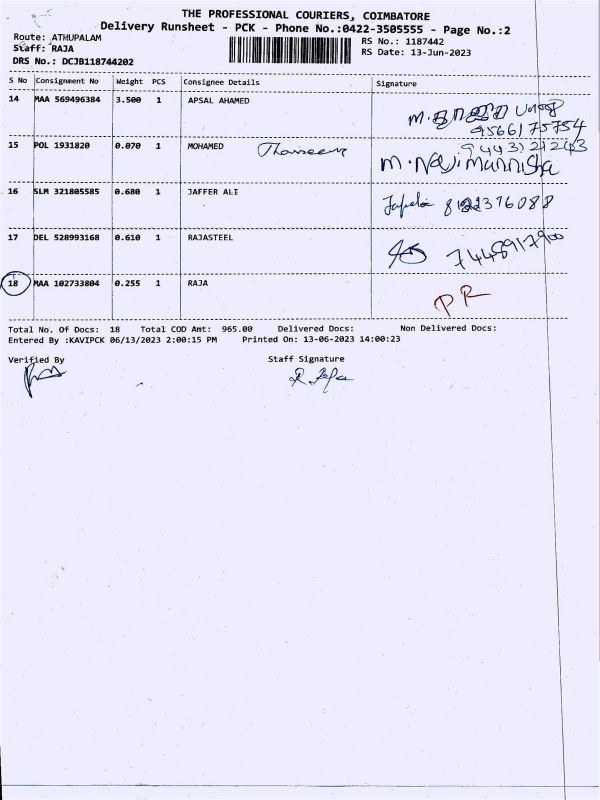 THE PROFESSIONAL COURIERS, COIMBATORE
Delivery Runsheet - PCK - Phone No.:0422-3505555 - Page No.:2
Route: ATHUPALAM
RS No.: 1187442
Staff: RAJA
RS Date: 13-Jun-2023
DRS No.: DCJB118744202
S No Consignment No Weight PCS Consignee Details Signature
14 MAA 569496384 3.500 1 APSAL AHAMED
9566175754
15 POL 1931820 0.070 1 MOHAMED
9443121243
16 SLM 321805585 0.680 1 JAFFER ALI
17 DEL 528993168 0.610 1 RAJASTEEL
7448917900
18 MAA 102733804 0.255 1 RAJA
PR
Total No. Of Docs: 18 Total COD Amt: 965.00 Delivered Docs: Non Delivered Docs:
Entered By :KAVIPCK 06/13/2023 2:00:15 PM Printed On: 13-06-2023 14:00:23
Verified By Staff Signature